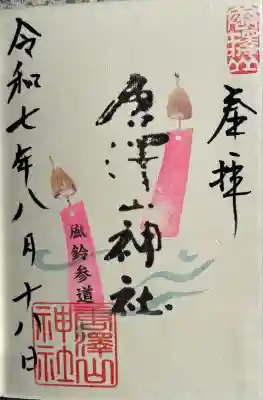 唐澤山
奉拝
唐澤山神社
風鈴参道
令和七年八月十八日
唐澤山神社